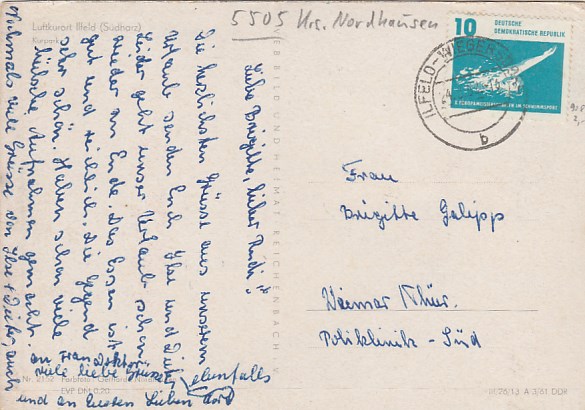 Luftkurort Ilfeld (Südharz)
Kurpark
5505 Krs. Nordhausen
10 DEUTSCHE
DEMOKRATISCHE REPUBLIK
ILFELD-WIEGERS
b
VERLAG BILD UND HEIMAT REICHENBACH I. V.
Liebe Brigitte, lieber Rudi!
Die herzlichsten Grüsse aus unserem
Urlaub senden Euch Ilse und Dieter
Leider geht unser Urlaub schon
wieder zu Ende. Das Essen ist
gut und reichlich. Die Gegend
sehr schön. Haben schon viele
hübsche Aufnahmen gemacht.
Nochmals viele Grüsse von Ilse + Dieter, auch
an Frau Doktor
viele liebe Grüsse, ebenfalls
und an Eueren Lieben dort
Frau
Brigitte
Weimar Thür.
Poliklinik - Süd
EVP DM 0,20
III/26/13 A 3/61 DDR